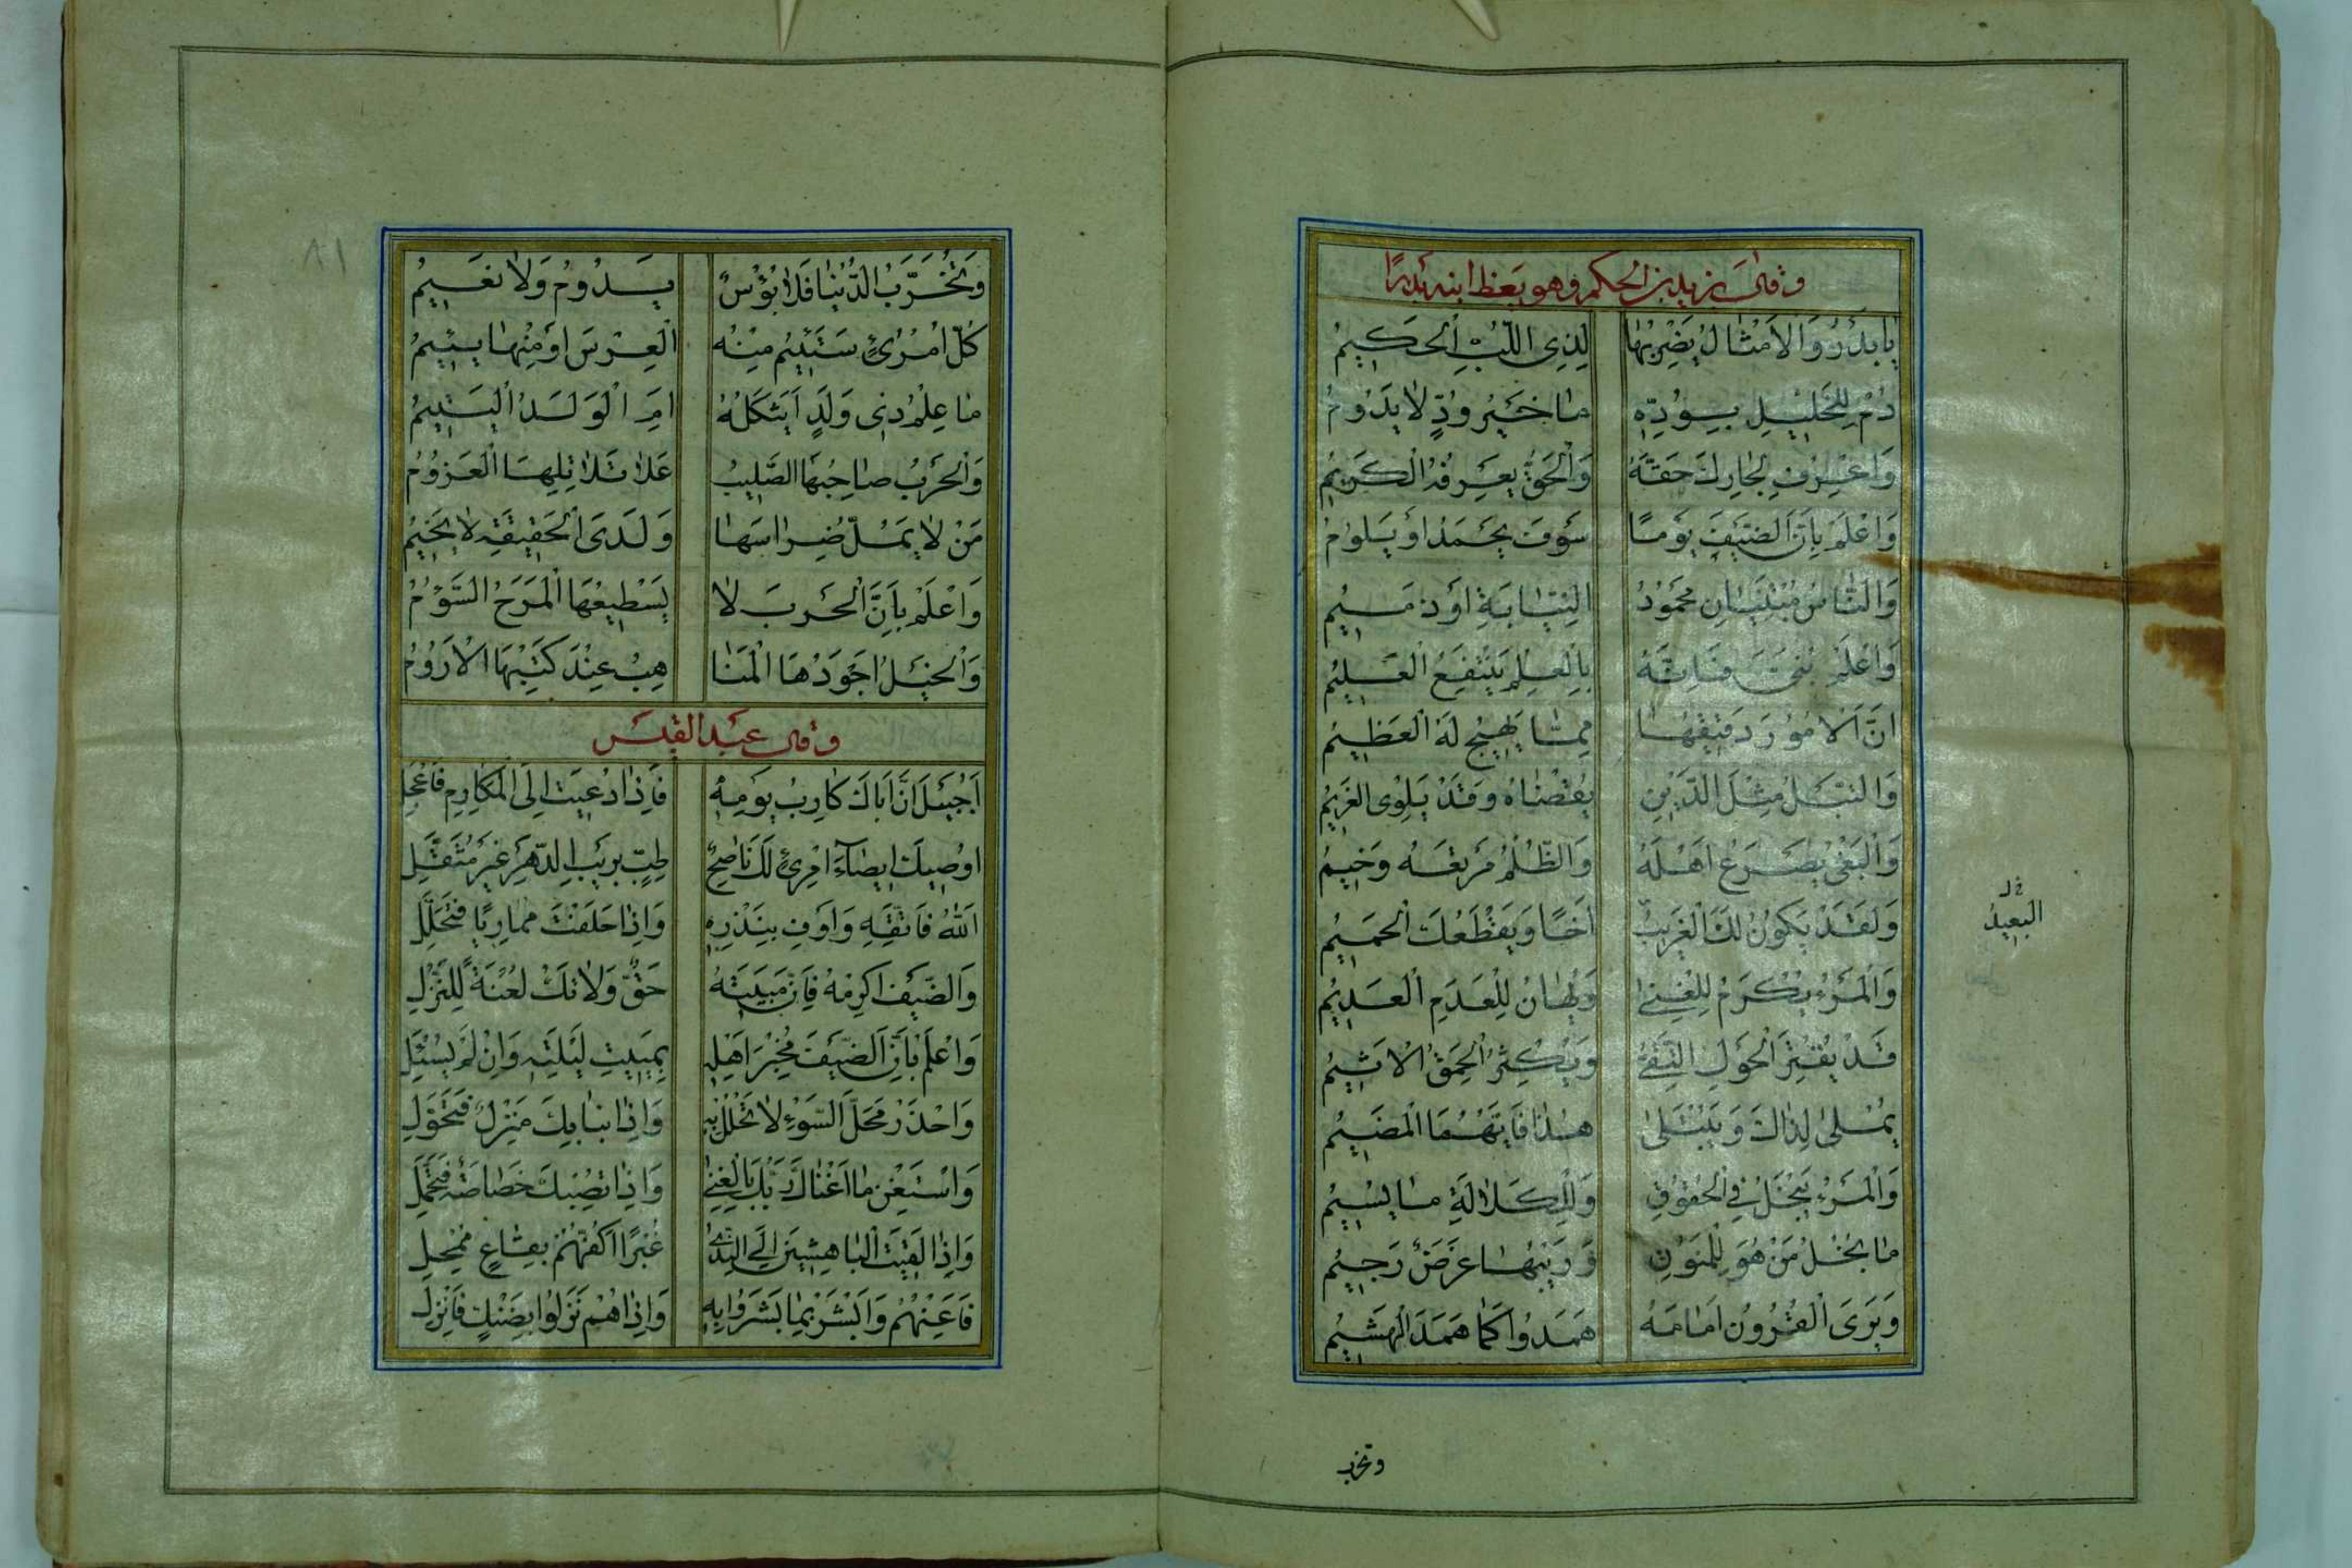 وقال يزيد بن الحكم وهو يعظ ابنه بدرًا
يا بَدْرُ وَالأَمْثالُ يَضْرِبُها لِذِي اللُّبِّ الْحَكِيمُ
دُمْ لِلْخَلِيلِ بِوُدِّهِ ما خَيْرُ وُدٍّ لا يَدُومُ
وَاعْرِفْ لِجارِكَ حَقَّهُ وَالْحَقُّ يَعْرِفُهُ الْكَرِيمُ
وَاعْلَمْ بِأَنَّ الضَّيْفَ يَوْمًا سَوْفَ يَحْمَدُ أَوْ يَلُومُ
وَالنّاسُ مُبْتَنَيانِ مَحْمُودُ الْبِنايَةِ أَوْ ذَمِيمُ
وَاعْلَمْ بُنَيَّ فَإِنَّهُ بِالْعِلْمِ يَنْتَفِعُ الْعَلِيمُ
إِنَّ الأُمُورَ دَقِيقُها مِمّا يَهِيجُ لَهُ الْعَظِيمُ
وَالتَّبْلُ مِثْلُ الدَّيْنِ يُقْضاهُ وَقَدْ يَلْوِى الْغَرِيمُ
وَالْبَغْيُ يَصْرَعُ أَهْلَهُ وَالظُّلْمُ مَرْتَعُهُ وَخِيمُ
وَلَقَدْ يَكُونُ لَكَ الْغَرِيبُ أَخًا وَيَقْطَعُكَ الْحَمِيمُ
خ ل
البعيدُ
وَالْمَرْءُ يُكْرَمُ لِلْغِنى وَيُهانُ لِلْعَدَمِ الْعَدِيمُ
قَدْ يُقْتِرُ الْحَوِلُ التَّقِيُّ وَيُكْثِرُ الْحَمِقُ الأَثِيمُ
يُمْلى لِذاكَ وَيُبْتَلى هذا فَأَيُّهُمَا الْمَضِيمُ
وَالْمَرْءُ يَبْخَلُ فِي الْحُقُوقِ وَلِلْكَلالَةِ ما يُسِيمُ
ما بُخْلُ مَنْ هُوَ لِلْمَنُونِ وَرَيْبِها غَرَضٌ رَجِيمُ
وَيَرَى الْقُرُونَ أَمامَهُ هَمَدُوا كَما هَمَدَ الْهَشِيمُ
وتخرب
٨١
وَتُخَرَّبُ الدُّنْيا فَلا بُؤْسٌ يَدُومُ وَلا نَعِيمُ
كُلُّ امْرِئٍ سَتَئِيمُ مِنْهُ الْعِرْسُ أَوْ مِنْها يَئِيمُ
ما عِلْمُ ذِي وَلَدٍ أَيَثْكَلُهُ أَمِ الْوَلَدُ الْيَتِيمُ
وَالْحَرْبُ صاحِبُهَا الصَّلِيبُ عَلى تَلاتِلِهَا الْعَزُومُ
مَنْ لا يَمَلُّ ضِراسَها وَلَدَى الْحَقِيقَةِ لا يَخِيمُ
وَاعْلَمْ بِأَنَّ الْحَرْبَ لا يَسْطِيعُهَا الْمَرِحُ السَّؤُومُ
وَالْخَيْلُ أَجْوَدُهَا الْمَنا هِبُ عِنْدَ كَبَّتِهَا الأَزُومُ
وقال عبد القيس
أَجُبَيْلُ إِنَّ أَباكَ كارِبُ يَوْمِهِ فَإِذا دُعِيتَ إِلَى الْمَكارِمِ فَاعْجَلِ
أُوصِيكَ إِيصاءَ امْرِئٍ لَكَ ناصِحٍ طِبٍّ بِرَيْبِ الدَّهْرِ غَيْرِ مُغَفَّلِ
اللهُ فَاتَّقِهِ وَأَوْفِ بِنَذْرِهِ وَإِذا حَلَفْتَ مُمارِيًا فَتَحَلَّلِ
وَالضَّيْفَ أَكْرِمْهُ فَإِنَّ مَبِيتَهُ حَقٌّ وَلا تَكُ لُعْنَةً لِلنُّزَّلِ
وَاعْلَمْ بِأَنَّ الضَّيْفَ مُخْبِرُ أَهْلِهِ بِمَبِيتِ لَيْلَتِهِ وَإِنْ لَمْ يُسْئَلِ
وَاحْذَرْ مَحَلَّ السَّوْءِ لا تَحْلُلْ بِهِ وَإِذا نَبا بِكَ مَنْزِلٌ فَتَحَوَّلِ
وَاسْتَغْنِ ما أَغْناكَ رَبُّكَ بِالْغِنى وَإِذا تُصِبْكَ خَصاصَةٌ فَتَجَمَّلِ
وَإِذا لَقِيتَ الْباهِشِينَ إِلَى النَّدى غُبْرًا أَكُفُّهُمْ بِقاعٍ مُمْحِلِ
فَأَعِنْهُمُ وَابْشَرْ بِما بَشَرُوا بِهِ وَإِذا هُمْ نَزَلُوا بِضَنْكٍ فَانْزِلِ